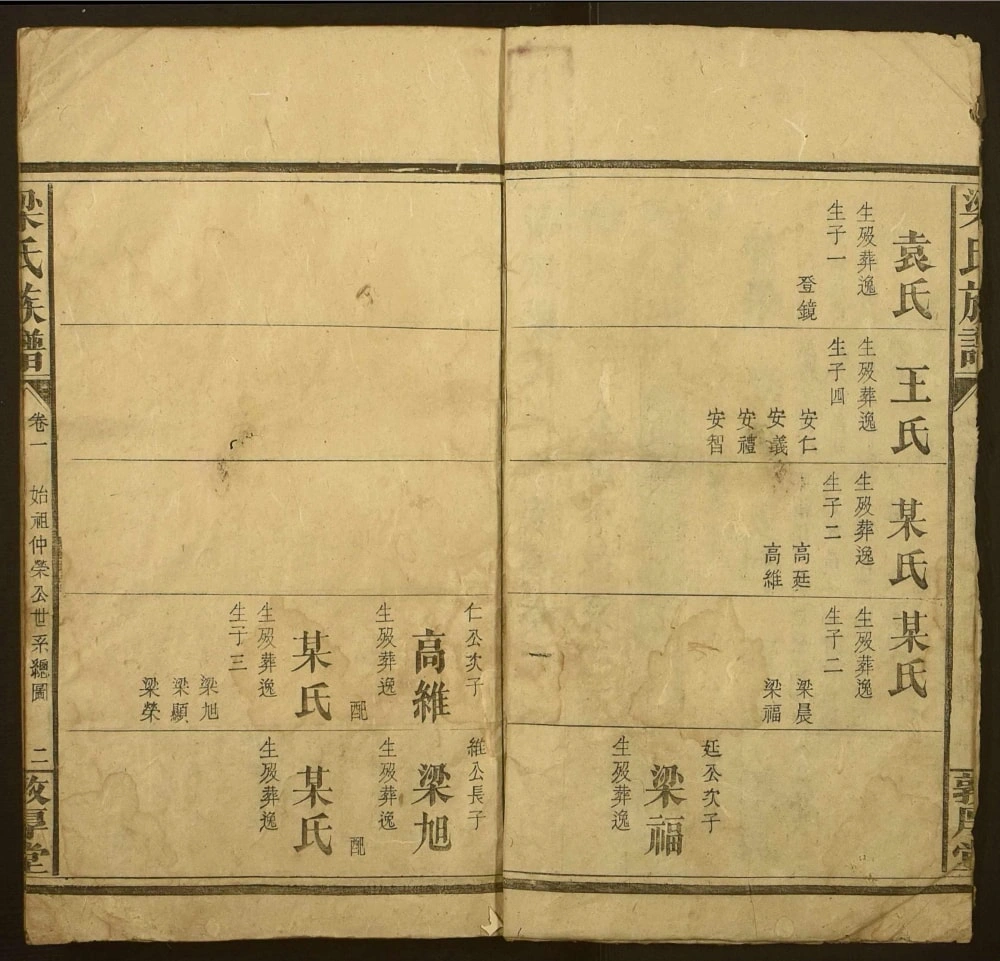 梁氏族譜
敦厚堂
袁氏
生歿葬逸
生子一
登鏡
王氏
生歿葬逸
生子四
安仁
安義
安禮
安智
某氏
生歿葬逸
生子二
高廷
高維
某氏
生歿葬逸
生子二
梁晨
梁福
廷公次子
梁福
生歿葬逸
仁公次子
高維
生歿葬逸
配
某氏
生歿葬逸
生子三
梁旭
梁顯
梁榮
維公長子
梁旭
生歿葬逸
配
某氏
生歿葬逸
梁氏族譜
卷一
始祖仲榮公世系總圖
二
敦厚堂